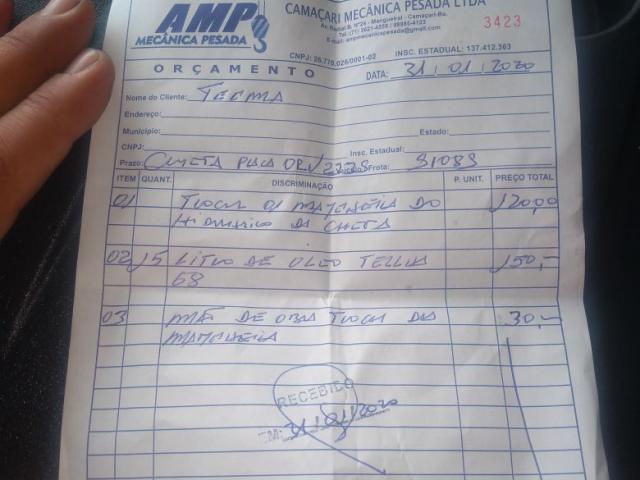 AMP
MECÂNICA PESADA
CAMAÇARI MECÂNICA PESADA LTDA
Mangueiral - Camaçari-Ba.
E-mail: ampmecanicapesada@gmail.com
3423
CNPJ: 26.770.026/0001-02 INSC. ESTADUAL: 137.412.363
ORÇAMENTO DATA: 31/01/2020
Nome do Cliente: TECMA
Endereço:
Município: Estado:
CNPJ: Insc. Estadual:
Prazo: PLACA Frota: 31083
ITEM QUANT. DISCRIMINAÇÃO P. UNIT. PREÇO TOTAL
01 TROCAR 01 MANGUEIRA DO 120,00
HIDRAULICO DA
02 15 LITRO DE OLEO TELLUS 150,-
68
03 MÃO DE OBRA TROCAR DA 30,-
MANGUEIRA
RECEBIDO
EM: 31/01/2020